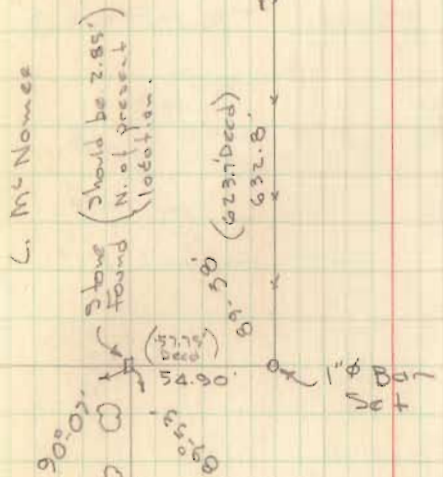 C. McNamee
Stone
Found
(Should be 2.85'
N. of present
location.
(623.7' Deed)
632.8'
89° 58'
(57.75'
Deed)
54.90'
90°-07'
89°-53'
1"ϕ Bar
Set